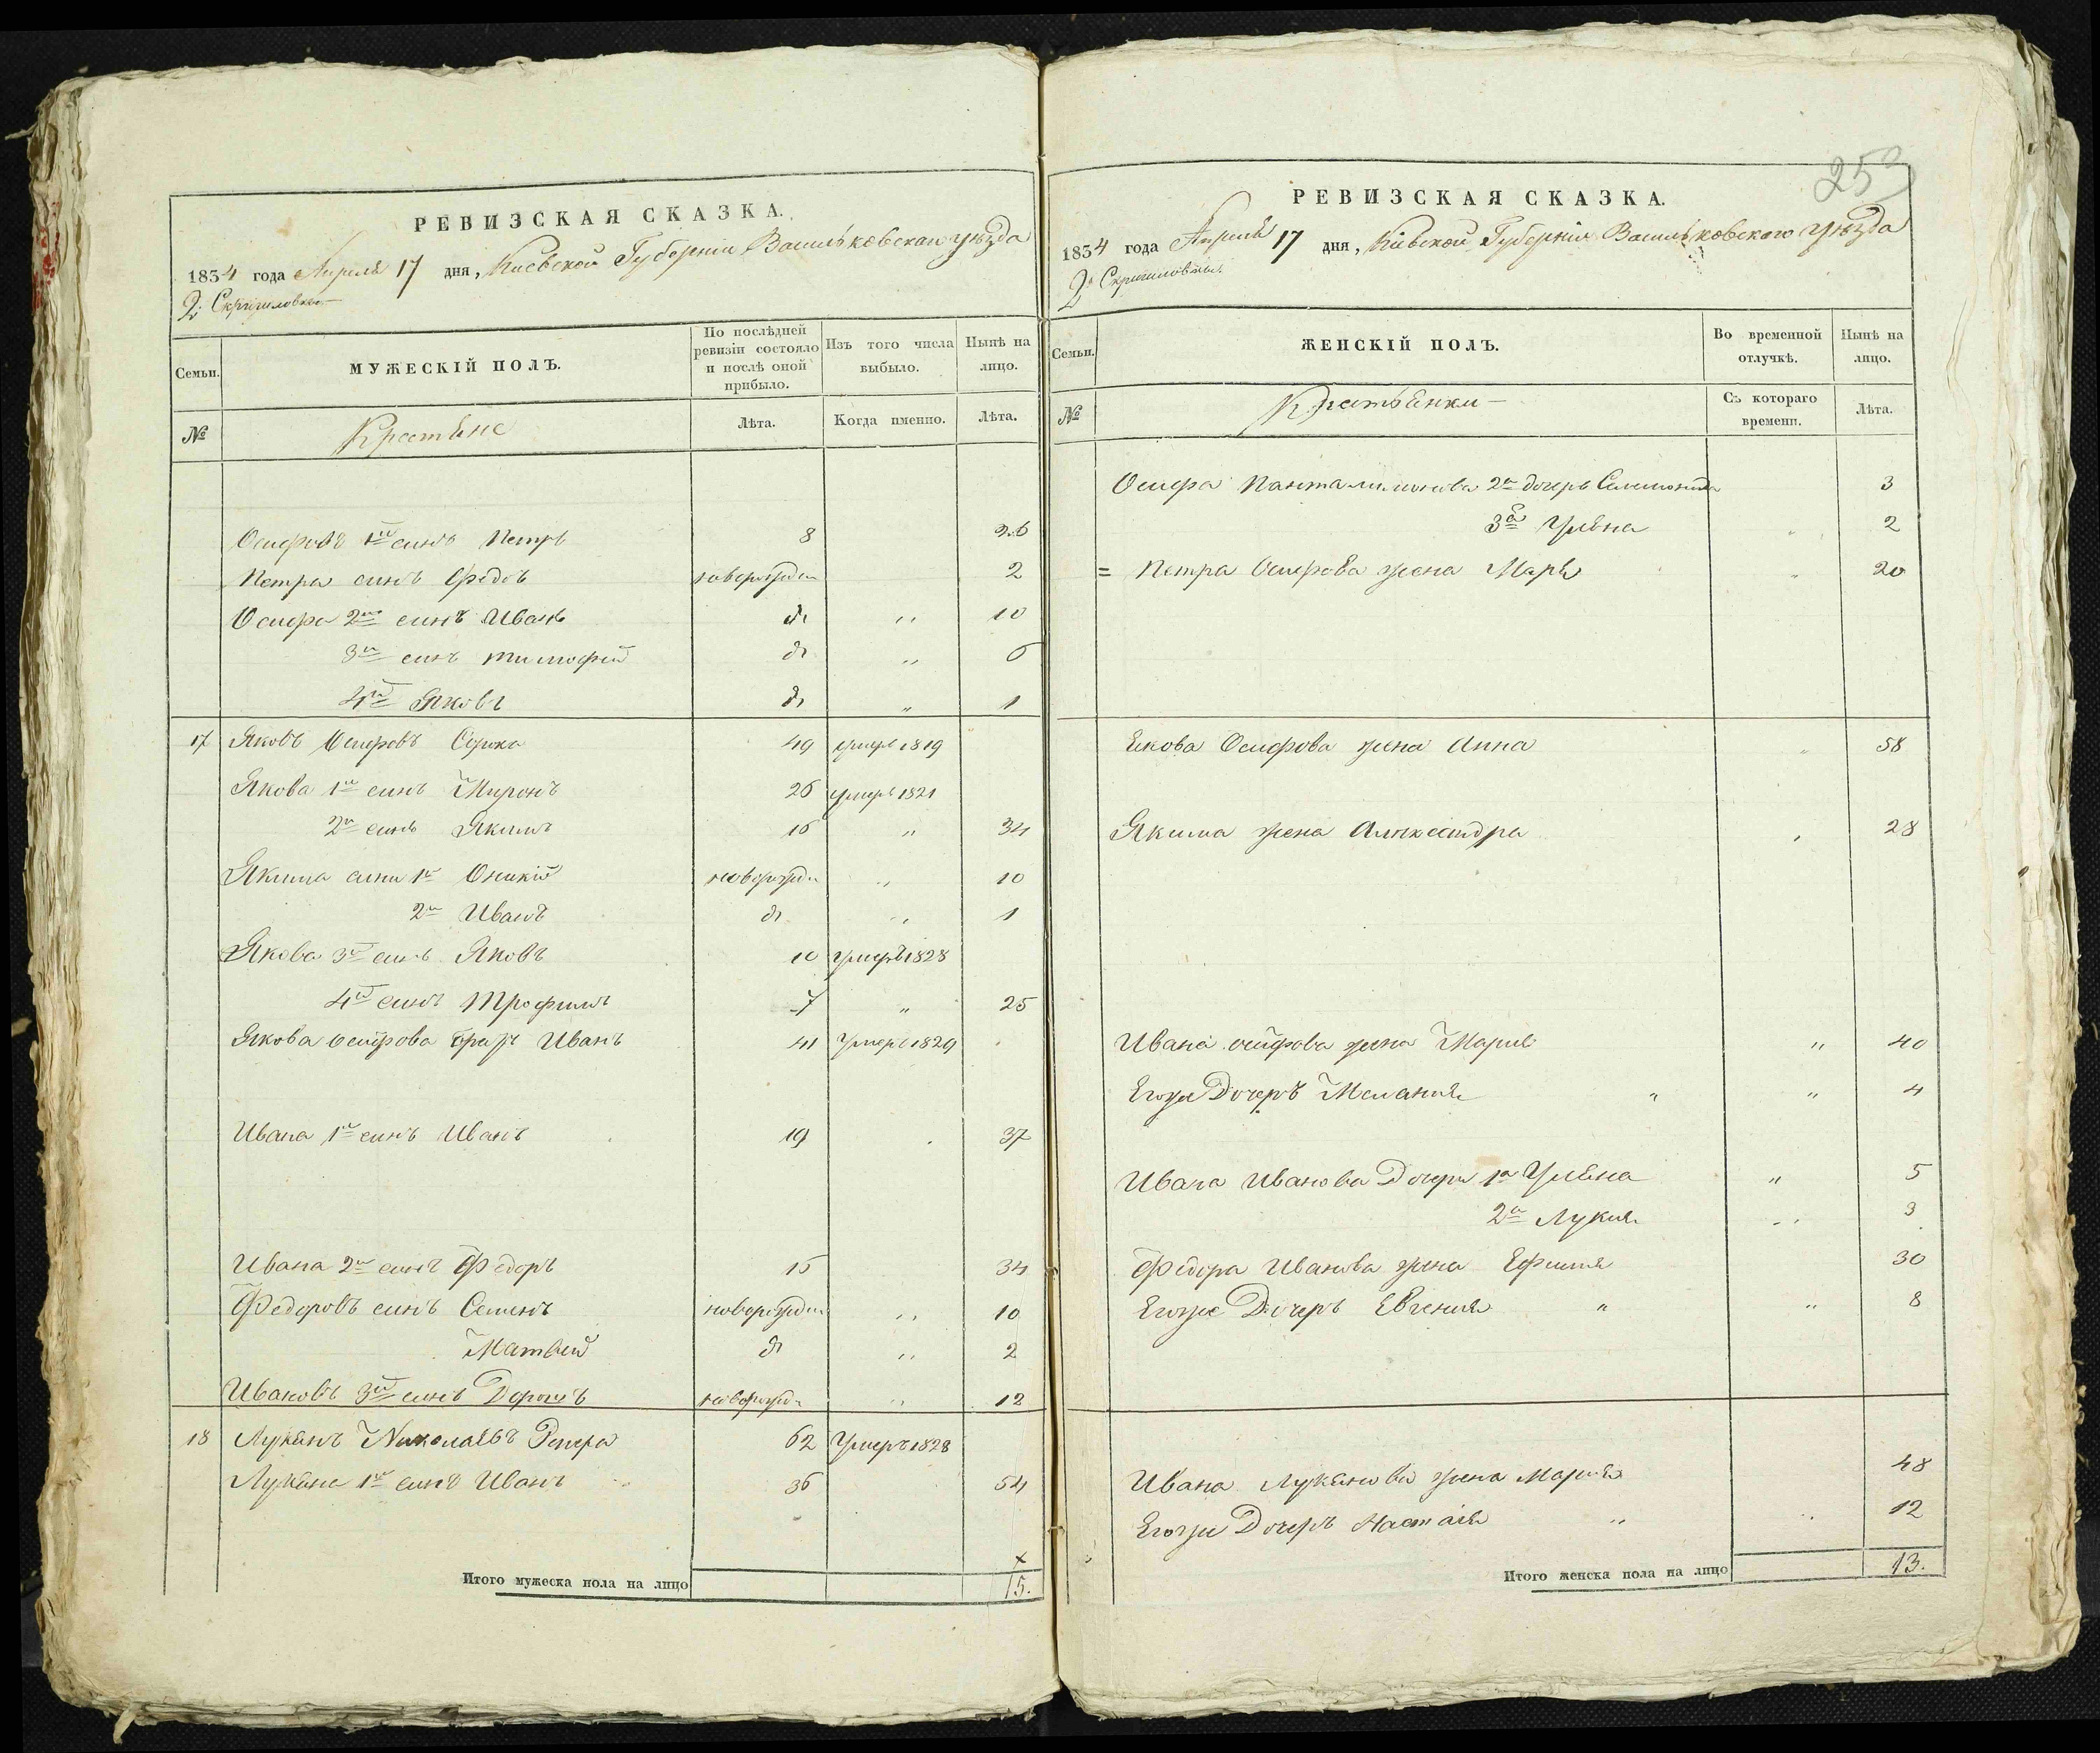 РЕВИЗСКАЯ СКАЗКА.
1834 года Апреля 17 дня, Киевской Губернии Васильковскаго уѣзда
Семьи.
МУЖЕСКІЙ ПОЛЪ.
По послѣдней ревизіи состояло и послѣ оной прибыло.
Изъ того числа выбыло.
Нынѣ на лицо.
№
Лѣта.
Когда именно.
Лѣта.
Осифовъ 1й синъ Петръ 8 26
Петра синъ 2
Осифа 2й синъ Иванъ д. " 10
3й синъ Тимофей д. " 6
4й Яковъ д. " 1
17 Яковъ Осифовъ Сорока 49 умеръ 1819
Якова 1й синъ Миронъ 26 умеръ 1821
2й синъ Якимъ 16 " 34
Якима сини 1й Оникій новорожден " 10
2й Иванъ д. " 1
Якова 3й синъ Яковъ 10 умеръ 1828
4й синъ Трофимъ 7 " 25
Якова Осифова братъ Иванъ 41 Умеръ 1829
Ивана 1й синъ Иванъ 19 37
Ивана 2й синъ Федоръ 15 34
Федоровъ синъ Семенъ новорожден " 10
Матвей д. " 2
Ивановъ 3й синъ " 12
18 Лукянъ Николаевъ 62 Умеръ 1828
Лукяна 1й синъ Иванъ 36 54
Итого мужеска пола на лицо 15.
253
РЕВИЗСКАЯ СКАЗКА.
1834 года Апреля 17 дня, Кіевской Губерніи Васильковскаго уѣзда
Семьи.
ЖЕНСКІЙ ПОЛЪ.
Во временной отлучкѣ.
Нынѣ на лицо.
№
Съ котораго времени.
Лѣта.
Осифа 2я дочерь 3
3я Уляна 2
= Петра Осифова жена Маря " 20
Якова Осифова жена Анна " 58
Якима жена Александра 28
Ивана осифова жена Мария " 40
Егоже Дочеръ Мелания " " 4
Ивана Иванова Дочери 1я Уляна " 5
2я Лукия " 3
Федора Иванова жена Ефимия 30
Егоже Дочеръ Евгения " " 8
Ивана Лукянова жена Мария 48
Егоже Дочеръ Настасия " " 12
Итого женска пола на лицо 13.